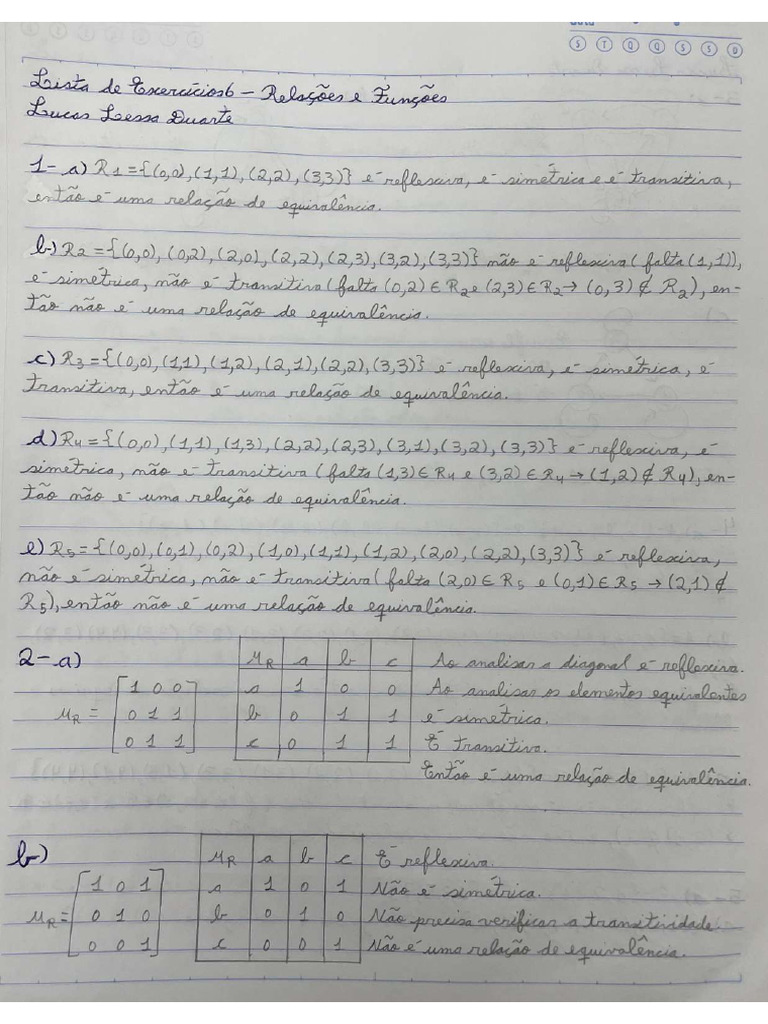 S T Q Q S S D
Lista de Exercícios 6 – Relações e Funções
Lucas Lessa Duarte
1- a) R1={(0,0),(1,1),(2,2),(3,3)} é reflexiva, é simétrica e é transitiva,
então é uma relação de equivalência.
b) R2={(0,0),(0,2),(2,0),(2,2),(2,3),(3,2),(3,3)} não é reflexiva (falta (1,1)),
é simétrica, não é transitiva (falta (0,2) ∈ R2 e (2,3) ∈ R2 → (0,3) ∉ R2), en-
tão não é uma relação de equivalência.
c) R3={(0,0),(1,1),(1,2),(2,1),(2,2),(3,3)} é reflexiva, é simétrica, é
transitiva, então é uma relação de equivalência.
d) R4={(0,0),(1,1),(1,3),(2,2),(2,3),(3,1),(3,2),(3,3)} é reflexiva, é
simétrica, não é transitiva (falta (1,3) ∈ R4 e (3,2) ∈ R4 → (1,2) ∉ R4), en-
tão não é uma relação de equivalência.
e) R5={(0,0),(0,1),(0,2),(1,0),(1,1),(1,2),(2,0),(2,2),(3,3)} é reflexiva,
não é simétrica, não é transitiva (falta (2,0) ∈ R5 e (0,1) ∈ R5 → (2,1) ∉
R5), então não é uma relação de equivalência.
2- a)
MR =
1 0 0
0 1 1
0 1 1
MR a b c
a 1 0 0
b 0 1 1
c 0 1 1
Ao analisar a diagonal é reflexiva.
Ao analisar os elementos equivalentes
é simétrica.
É transitiva.
Então é uma relação de equivalência.
b)
MR =
1 0 1
0 1 0
0 0 1
MR a b c
a 1 0 1
b 0 1 0
c 0 0 1
É reflexiva.
Não é simétrica.
Não precisa verificar a transitividade.
Não é uma relação de equivalência.